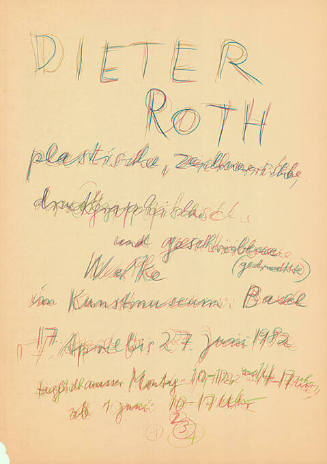 DIETER
ROTH
plastische, zeichnerische,
druckgraphische
und geschriebene
(gedruckte)
Werke
im Kunstmuseum Basel
17. April bis 27. Juni 1982
täglich ausser Montag 10-12 und 14-17 Uhr
ab 1. Juni: 10-17 Uhr